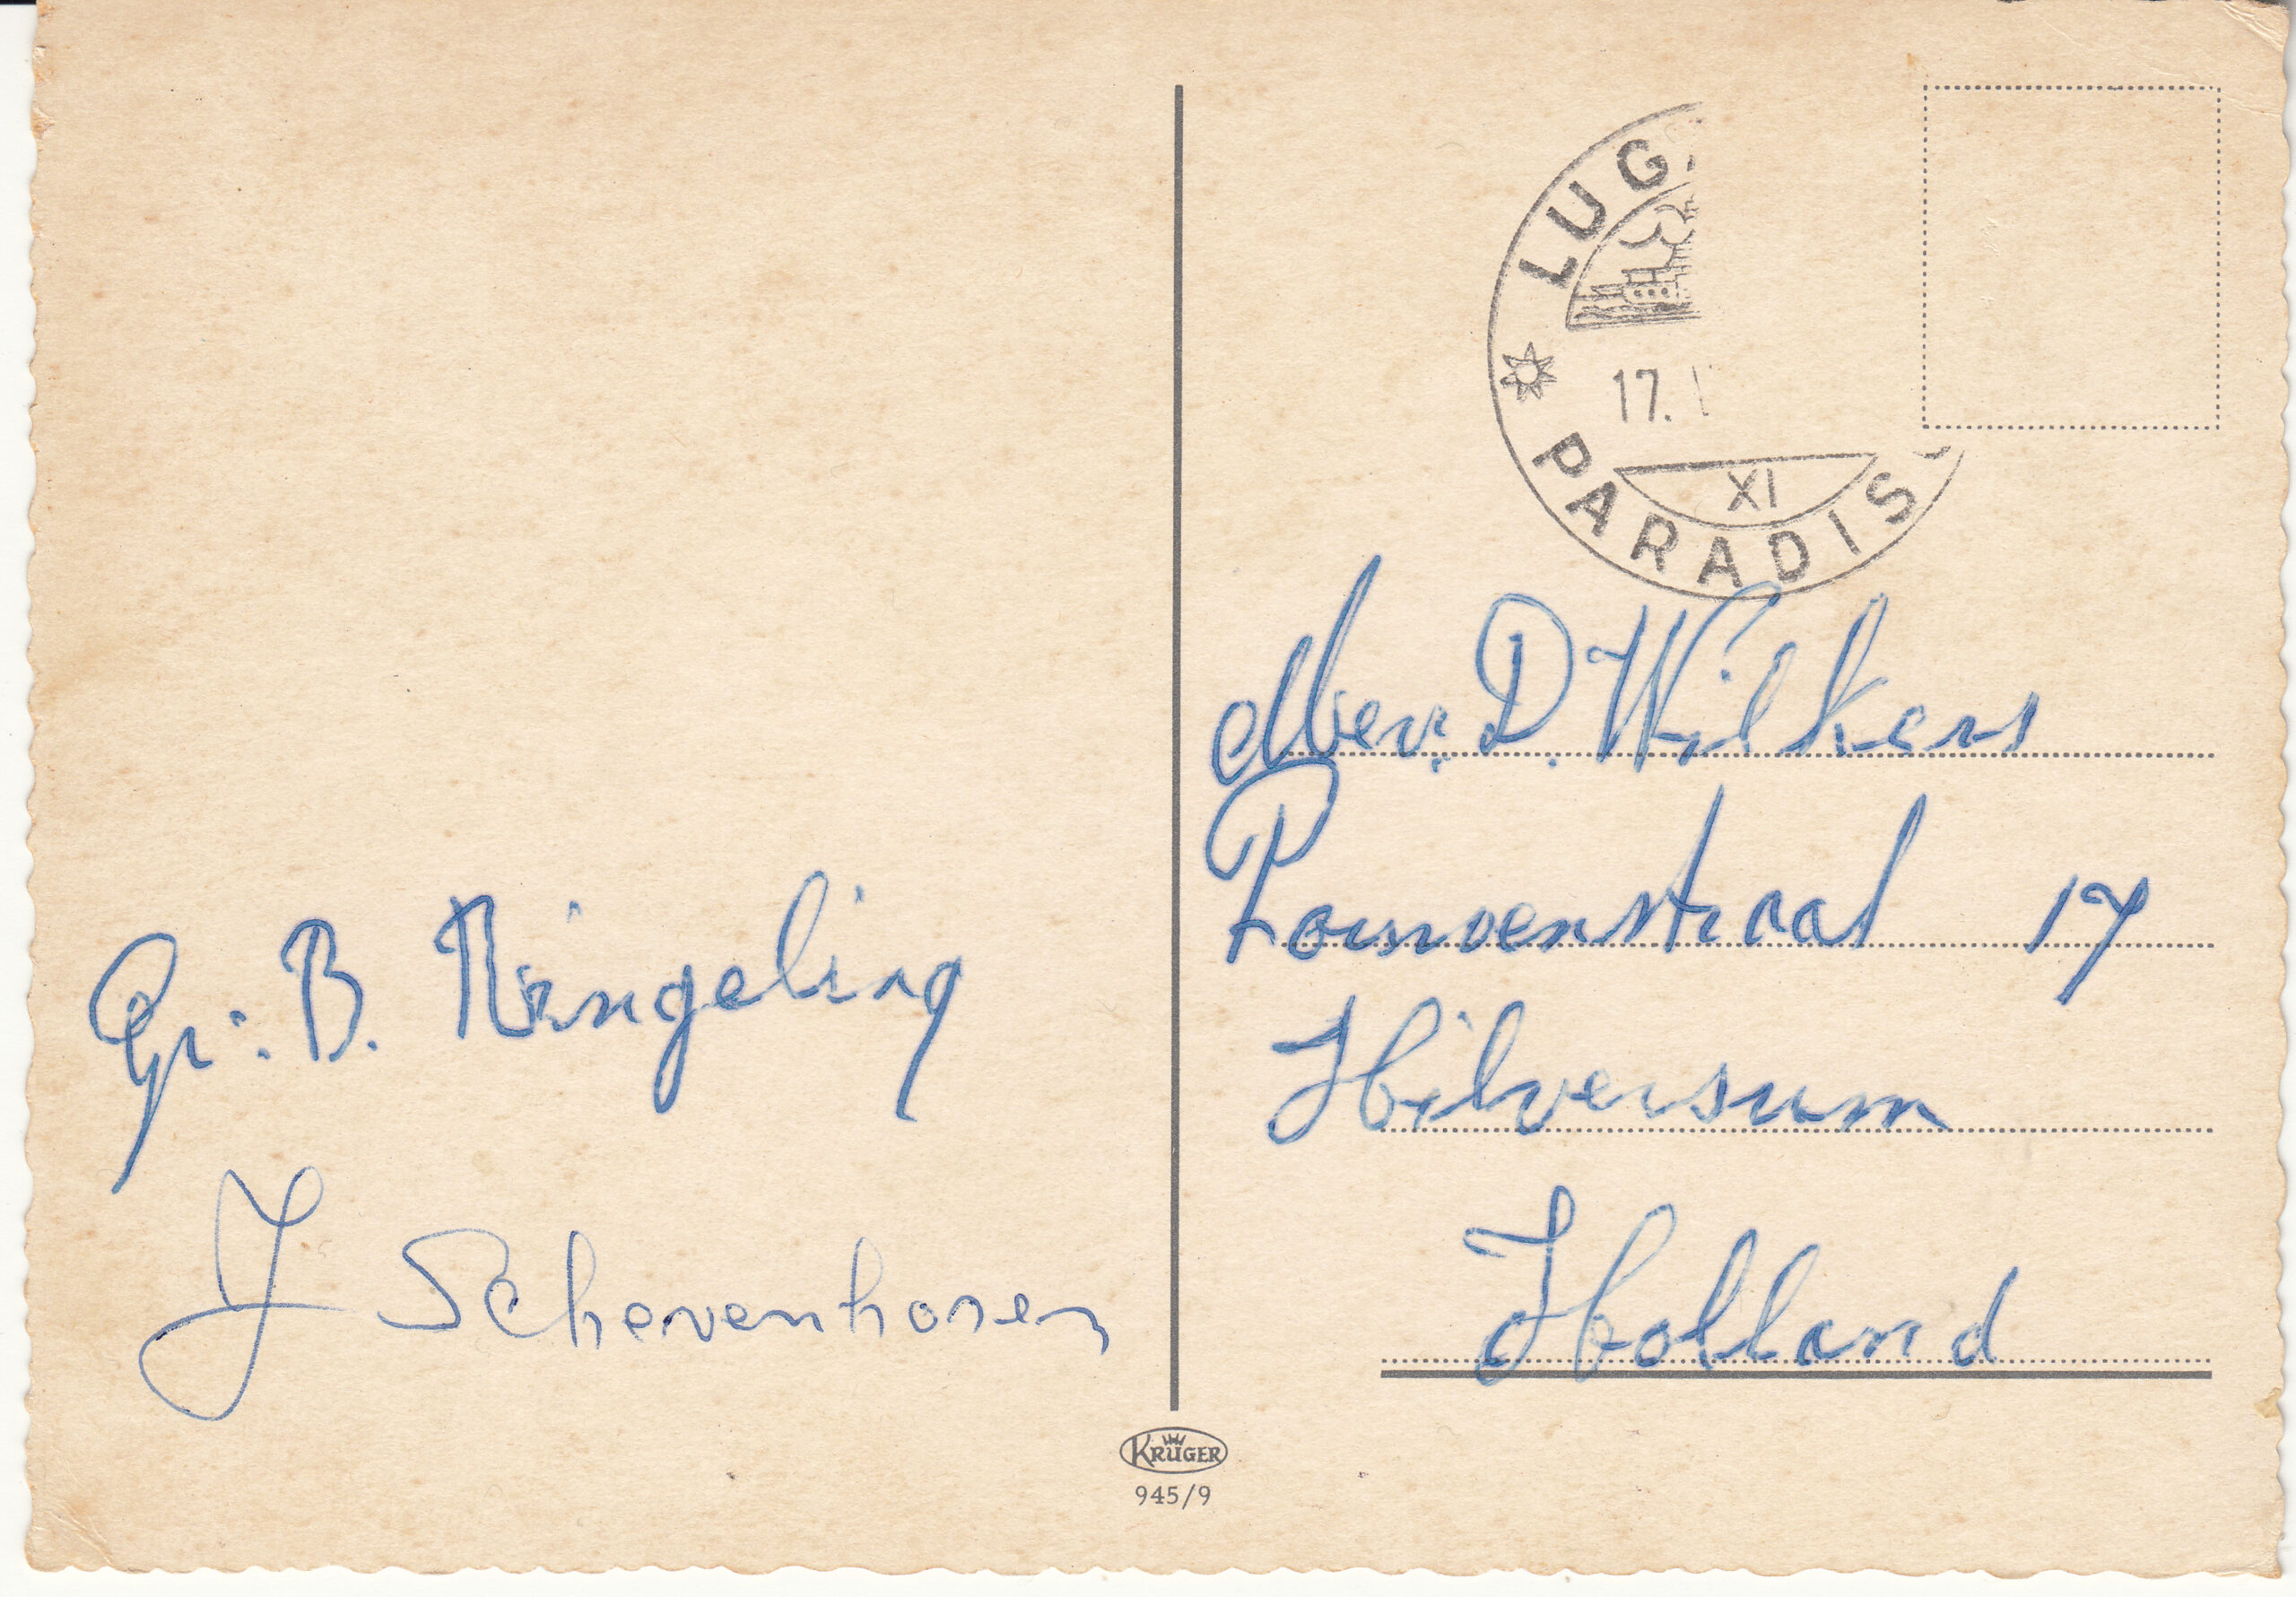 Gr: B. Ringeling
J Schevenhoven
LUGA
17.
XI
PARADIS
Mev. D. Wilkens
17
Hilversum
Holland
KRÜGER
945/9